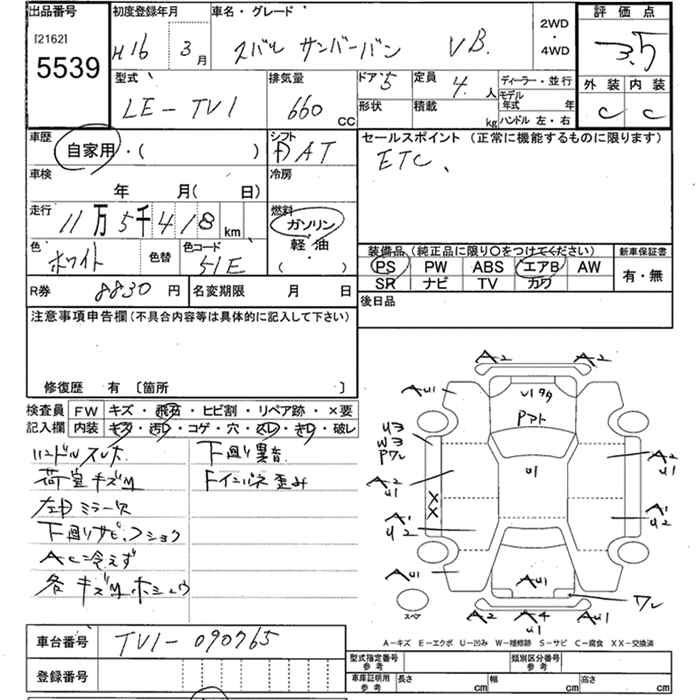 出品番号
[2162]
5539
初度登録年月
H16 3月
車名・グレード
スバル サンバーバン VB
2WD
・
4WD
評価点
3.5
外装 内装
C C
型式
LE-TV1
排気量
660 CC
ドア 5
形状
定員 4 人
積載 kg
ディーラー・並行
モデル
年式 年
ハンドル 左・右
車歴
自家用・( )
シフト
FAT
セールスポイント (正常に機能するものに限ります)
ETC、
車検
年 月( 日)
冷房
走行
11万5千418 km
燃料
ガソリン
軽・油
( ・ )
色
ホワイト
色替
色コード
51E
装備品 (純正品に限り○をつけてください)
PS PW ABS エアB AW
SR ナビ TV カワ
新車保証書
有・無
R券 8830 円
名変期限 月 日
後日品
注意事項申告欄(不具合内容等は具体的に記入して下さい)
修復歴 有 〔箇所 〕
検査員
記入欄
FW キズ・飛石・ヒビ割・リペア跡・×要
内装 キズ・汚レ・コゲ・穴・スレ・キレ・破レ
ハンドルスレ
荷室キズM
左ミラー欠
下廻りサビ、フショク
ACに冷えず
各キズMホシュウ
下廻り異音
Fインパネ歪み
A2 A2
AU1
V1タタ
Pマト
U3
W3
Pワレ
A2
U1
U1
A2
U1
X
X
A1
U2
A1
U2
AU1
AU1
AU1
ワレ
スペア
A2
A4
U1
AU1
A-キズ E-エクボ U-凹み W-補修跡 S-サビ C-腐食 XX-交換済
車台番号
TV1-090765
登録番号
型式指定番号
参考
類別区分番号
参考
車庫証明用
参考
長さ cm
幅 cm
高さ cm